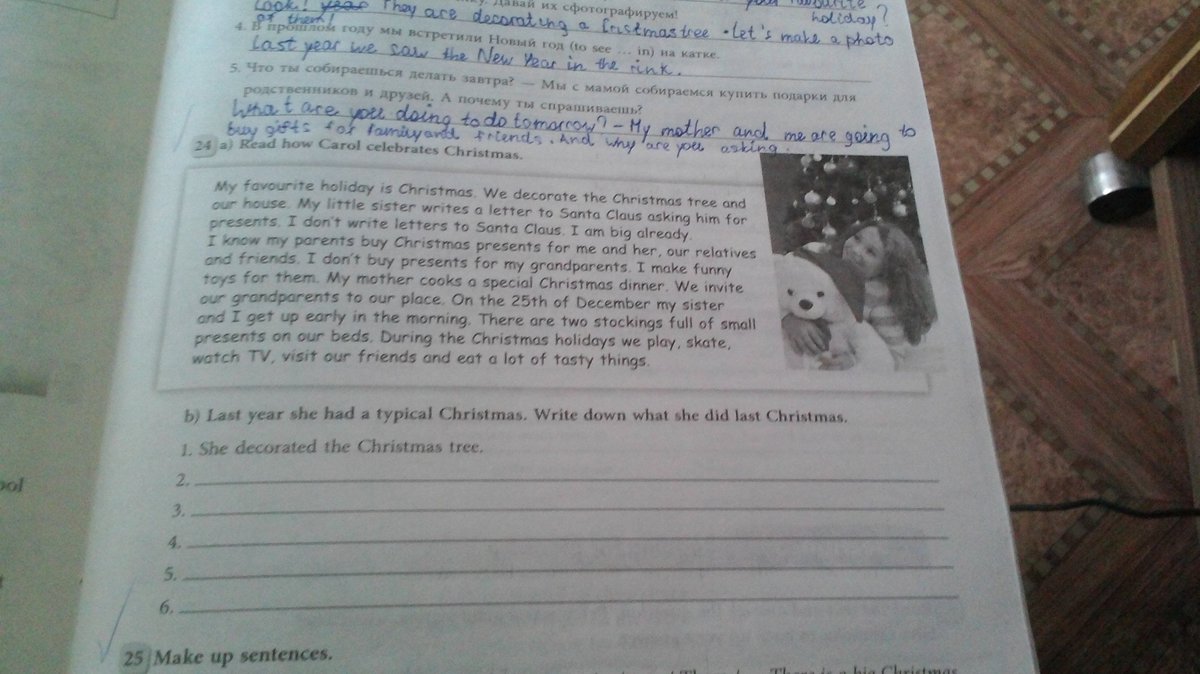 Давай их сфотографируем!
holiday?
Look! They are decorating a cristmas tree. Let's make a photo
of them!
4. В прошлом году мы встретили Новый год (to see ... in) на катке.
Last year we saw the New Year in the rink.
5. Что ты собираешься делать завтра? — Мы с мамой собираемся купить подарки для
родственников и друзей. А почему ты спрашиваешь?
What are you doing to do tomorrow? - My mother and me are going to
buy gifts for family and friends. And why are you asking.
24 a) Read how Carol celebrates Christmas.
My favourite holiday is Christmas. We decorate the Christmas tree and
our house. My little sister writes a letter to Santa Claus asking him for
presents. I don't write letters to Santa Claus. I am big already.
I know my parents buy Christmas presents for me and her, our relatives
and friends. I don't buy presents for my grandparents. I make funny
toys for them. My mother cooks a special Christmas dinner. We invite
our grandparents to our place. On the 25th of December my sister
and I get up early in the morning. There are two stockings full of small
presents on our beds. During the Christmas holidays we play, skate,
watch TV, visit our friends and eat a lot of tasty things.
b) Last year she had a typical Christmas. Write down what she did last Christmas.
1. She decorated the Christmas tree.
2.
3.
4.
5.
6.
25 Make up sentences.
There is a big Christmas